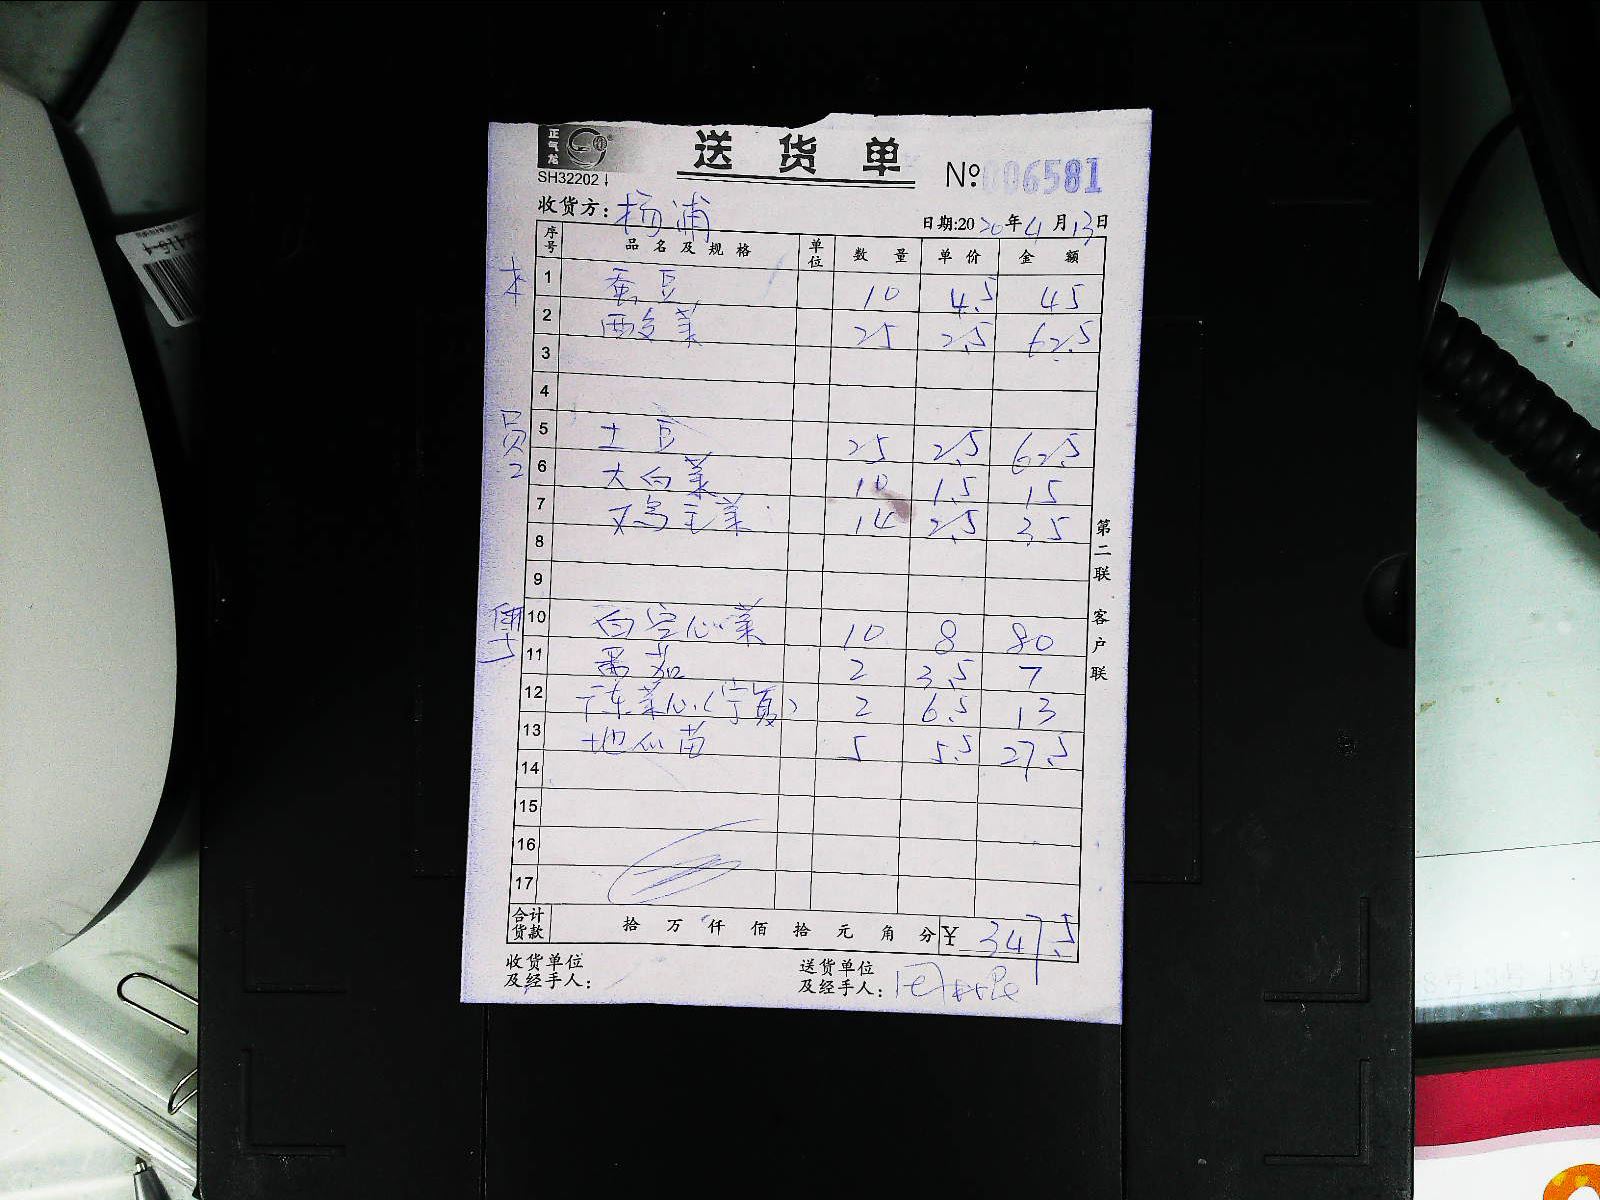 正气龙
送货单
SH32202 No. 006581
收货方: 杨浦 日期:2020年4月13日
序号 品名及规格 单位 数量 单价 金额
本
1 蚕豆 10 4.5 45
2 西生菜 25 2.5 62.5
3
4
员2
5 土豆 25 2.5 62.5
6 大白菜 10 1.5 15
7 又鸟毛菜 14 2.5 35
8
9
10 白空心菜 10 8 80
11 番茄 2 3.5 7
12 广东菜心(宁夏) 2 6.5 13
13 地瓜苗 5 5.5 27.5
14
15
16
17
合计货款 拾 万 仟 佰 拾 元 角 分 ¥ 347.5
收货单位及经手人:
送货单位及经手人: 周
第二联 客户联